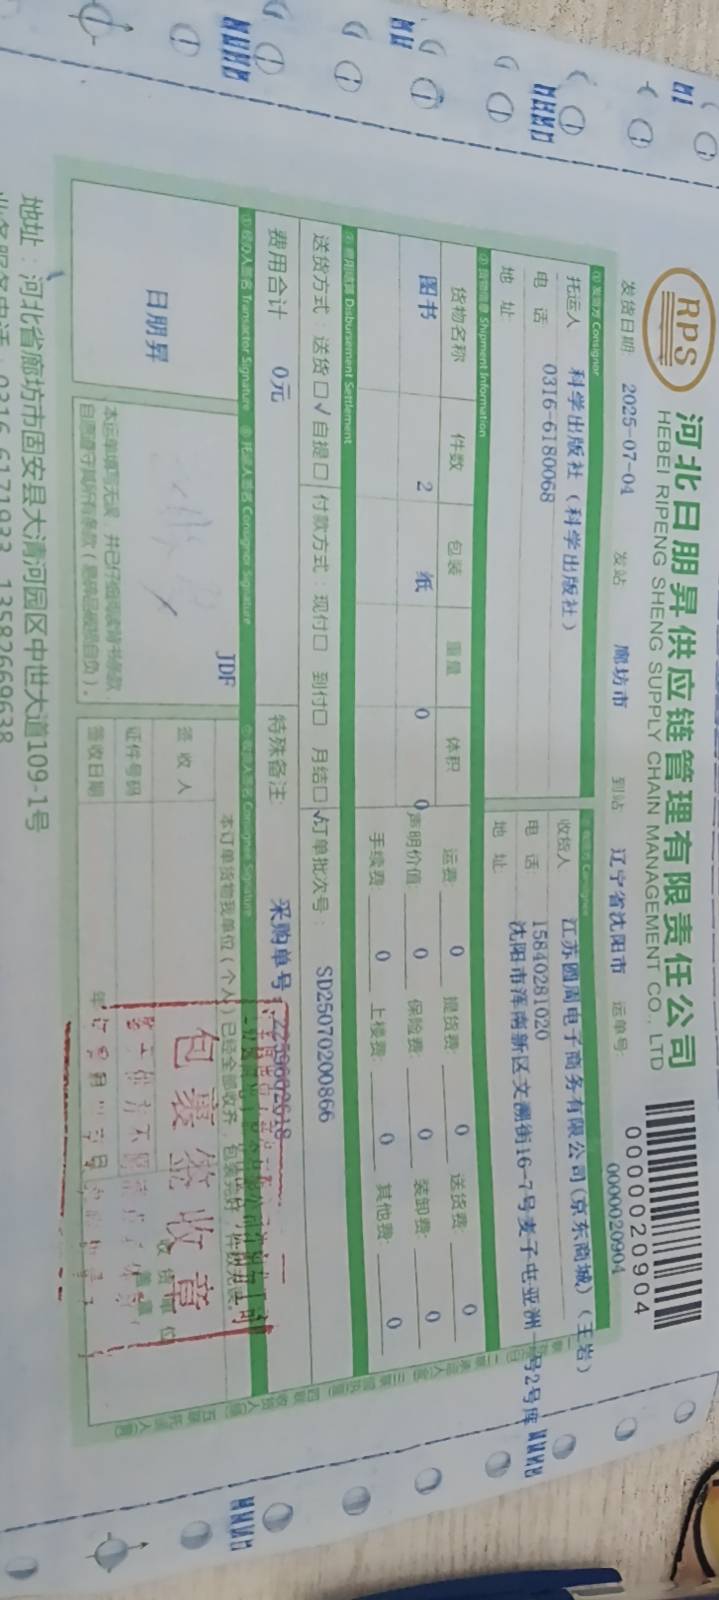 RPS
河北日朋昇供应链管理有限责任公司
HEBEI RIPENG SHENG SUPPLY CHAIN MANAGEMENT CO., LTD
0000020904
发货日期: 2025-07-04 发站: 廊坊市 到站: 辽宁省沈阳市 运单号: 0000020904
① 发货方 Consignor
托运人 科学出版社（科学出版社）
电 话: 0316-6180068
地 址:
收货人 江苏圆周电子商务有限公司(京东商城)（王岩）
电 话: 15840281020
地 址: 沈阳市浑南新区文溯街16-7号麦子屯亚洲一号2号库
Shipment Information
货物名称 件数 包装 重量 体积
图书 2 纸 0 0
运费: 0 提货费: 0 送货费: 0
声明价值: 0 保险费: 0 装卸费: 0
手续费: 0 上楼费: 0 其他费: 0
Disbursement Settlement
送货方式: 送货☐√ 自提☐ 付款方式: 现付☐ 到付☐ 月结☐√ 订单批次号: SD25070200866
费用合计 0元 特殊备注: 采购单号:
经办人签名 Transactor Signature
托运人签名 Consignor Signature
收货人签名 Consignee Signature
日朋昇
JDF
本订单货物我单位（个人）已经全部收齐，包装完好，
签收人
证件号码
签收日期 年 月 日
收货单位
包裹签收章
地址：河北省廊坊市固安县大清河园区中世大道109-1号
业务服务电话：0316-6171933 13582669638